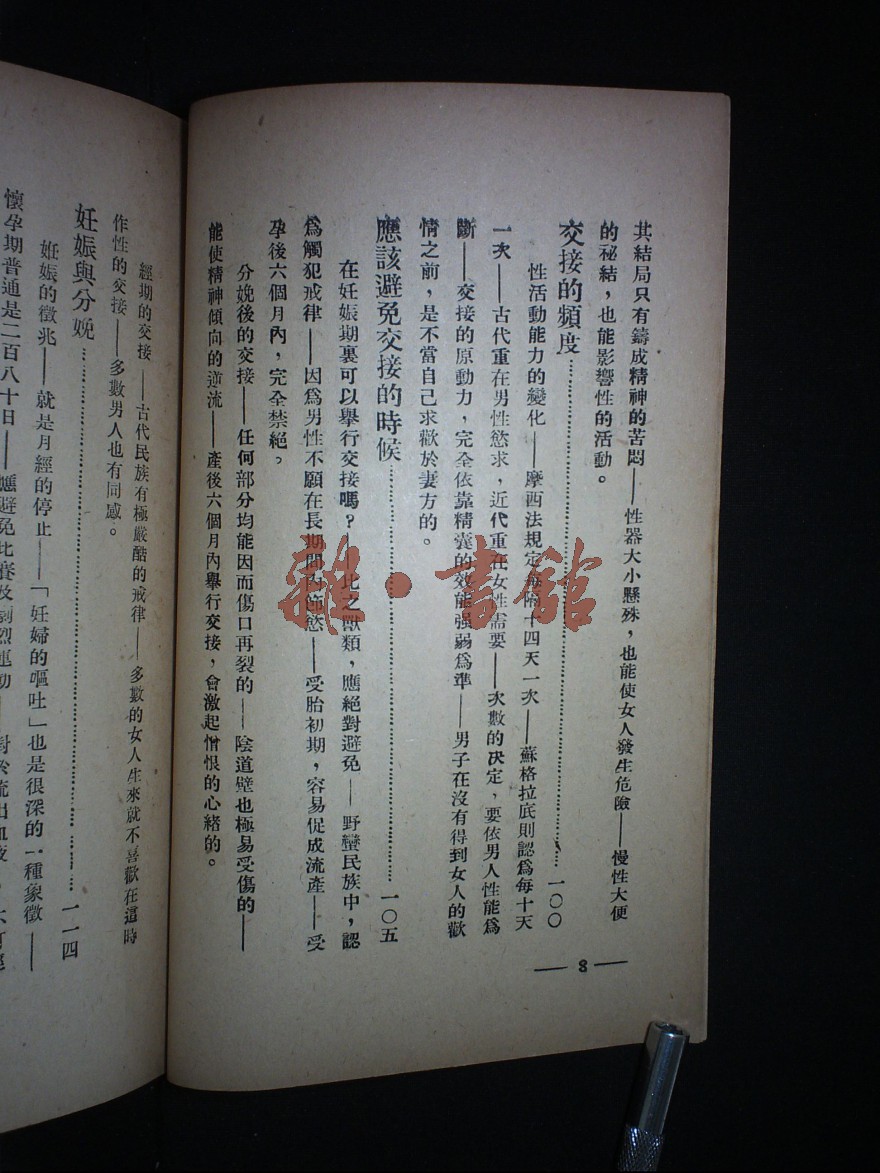 其結局只有鑄成精神的苦悶——性器大小懸殊，也能使女人發生危險——慢性大便
的祕結，也能影響性的活動。
交接的頻度……………………………………一〇〇
性活動能力的變化——摩西法規定每隔十四天一次——蘇格拉底則認爲每十天
一次——古代重在男性慾求，近代重在女性需要——次數的決定，要依男人性能爲
斷——交接的原動力，完全依靠精囊的效能强弱爲準——男子在沒有得到女人的歡
情之前，是不當自己求歡於妻方的。
應該避免交接的時候……………………………………一〇五
在妊娠期裏可以舉行交接嗎？——比之獸類，應絕對避免——野蠻民族中，認
爲觸犯戒律——因爲男性不願在長期間內節慾——受胎初期，容易促成流產——受
孕後六個月內，完全禁絕。
分娩後的交接——任何部分均能因而傷口再裂的——陰道壁也極易受傷的——
能使精神傾向的逆流——產後六個月內舉行交接，會激起憎恨的心緒的。
— 8 —
經期的交接——古代民族有極嚴酷的戒律——多數的女人生來就不喜歡在這時
作性的交接——多數男人也有同感。
妊娠與分娩……………………………………一一四
姙娠的徵兆——就是月經的停止——「妊婦的嘔吐」也是很深的一種象徵——
懷孕期普通是二百八十日——應避免比賽及劇烈運動——
雜·書館